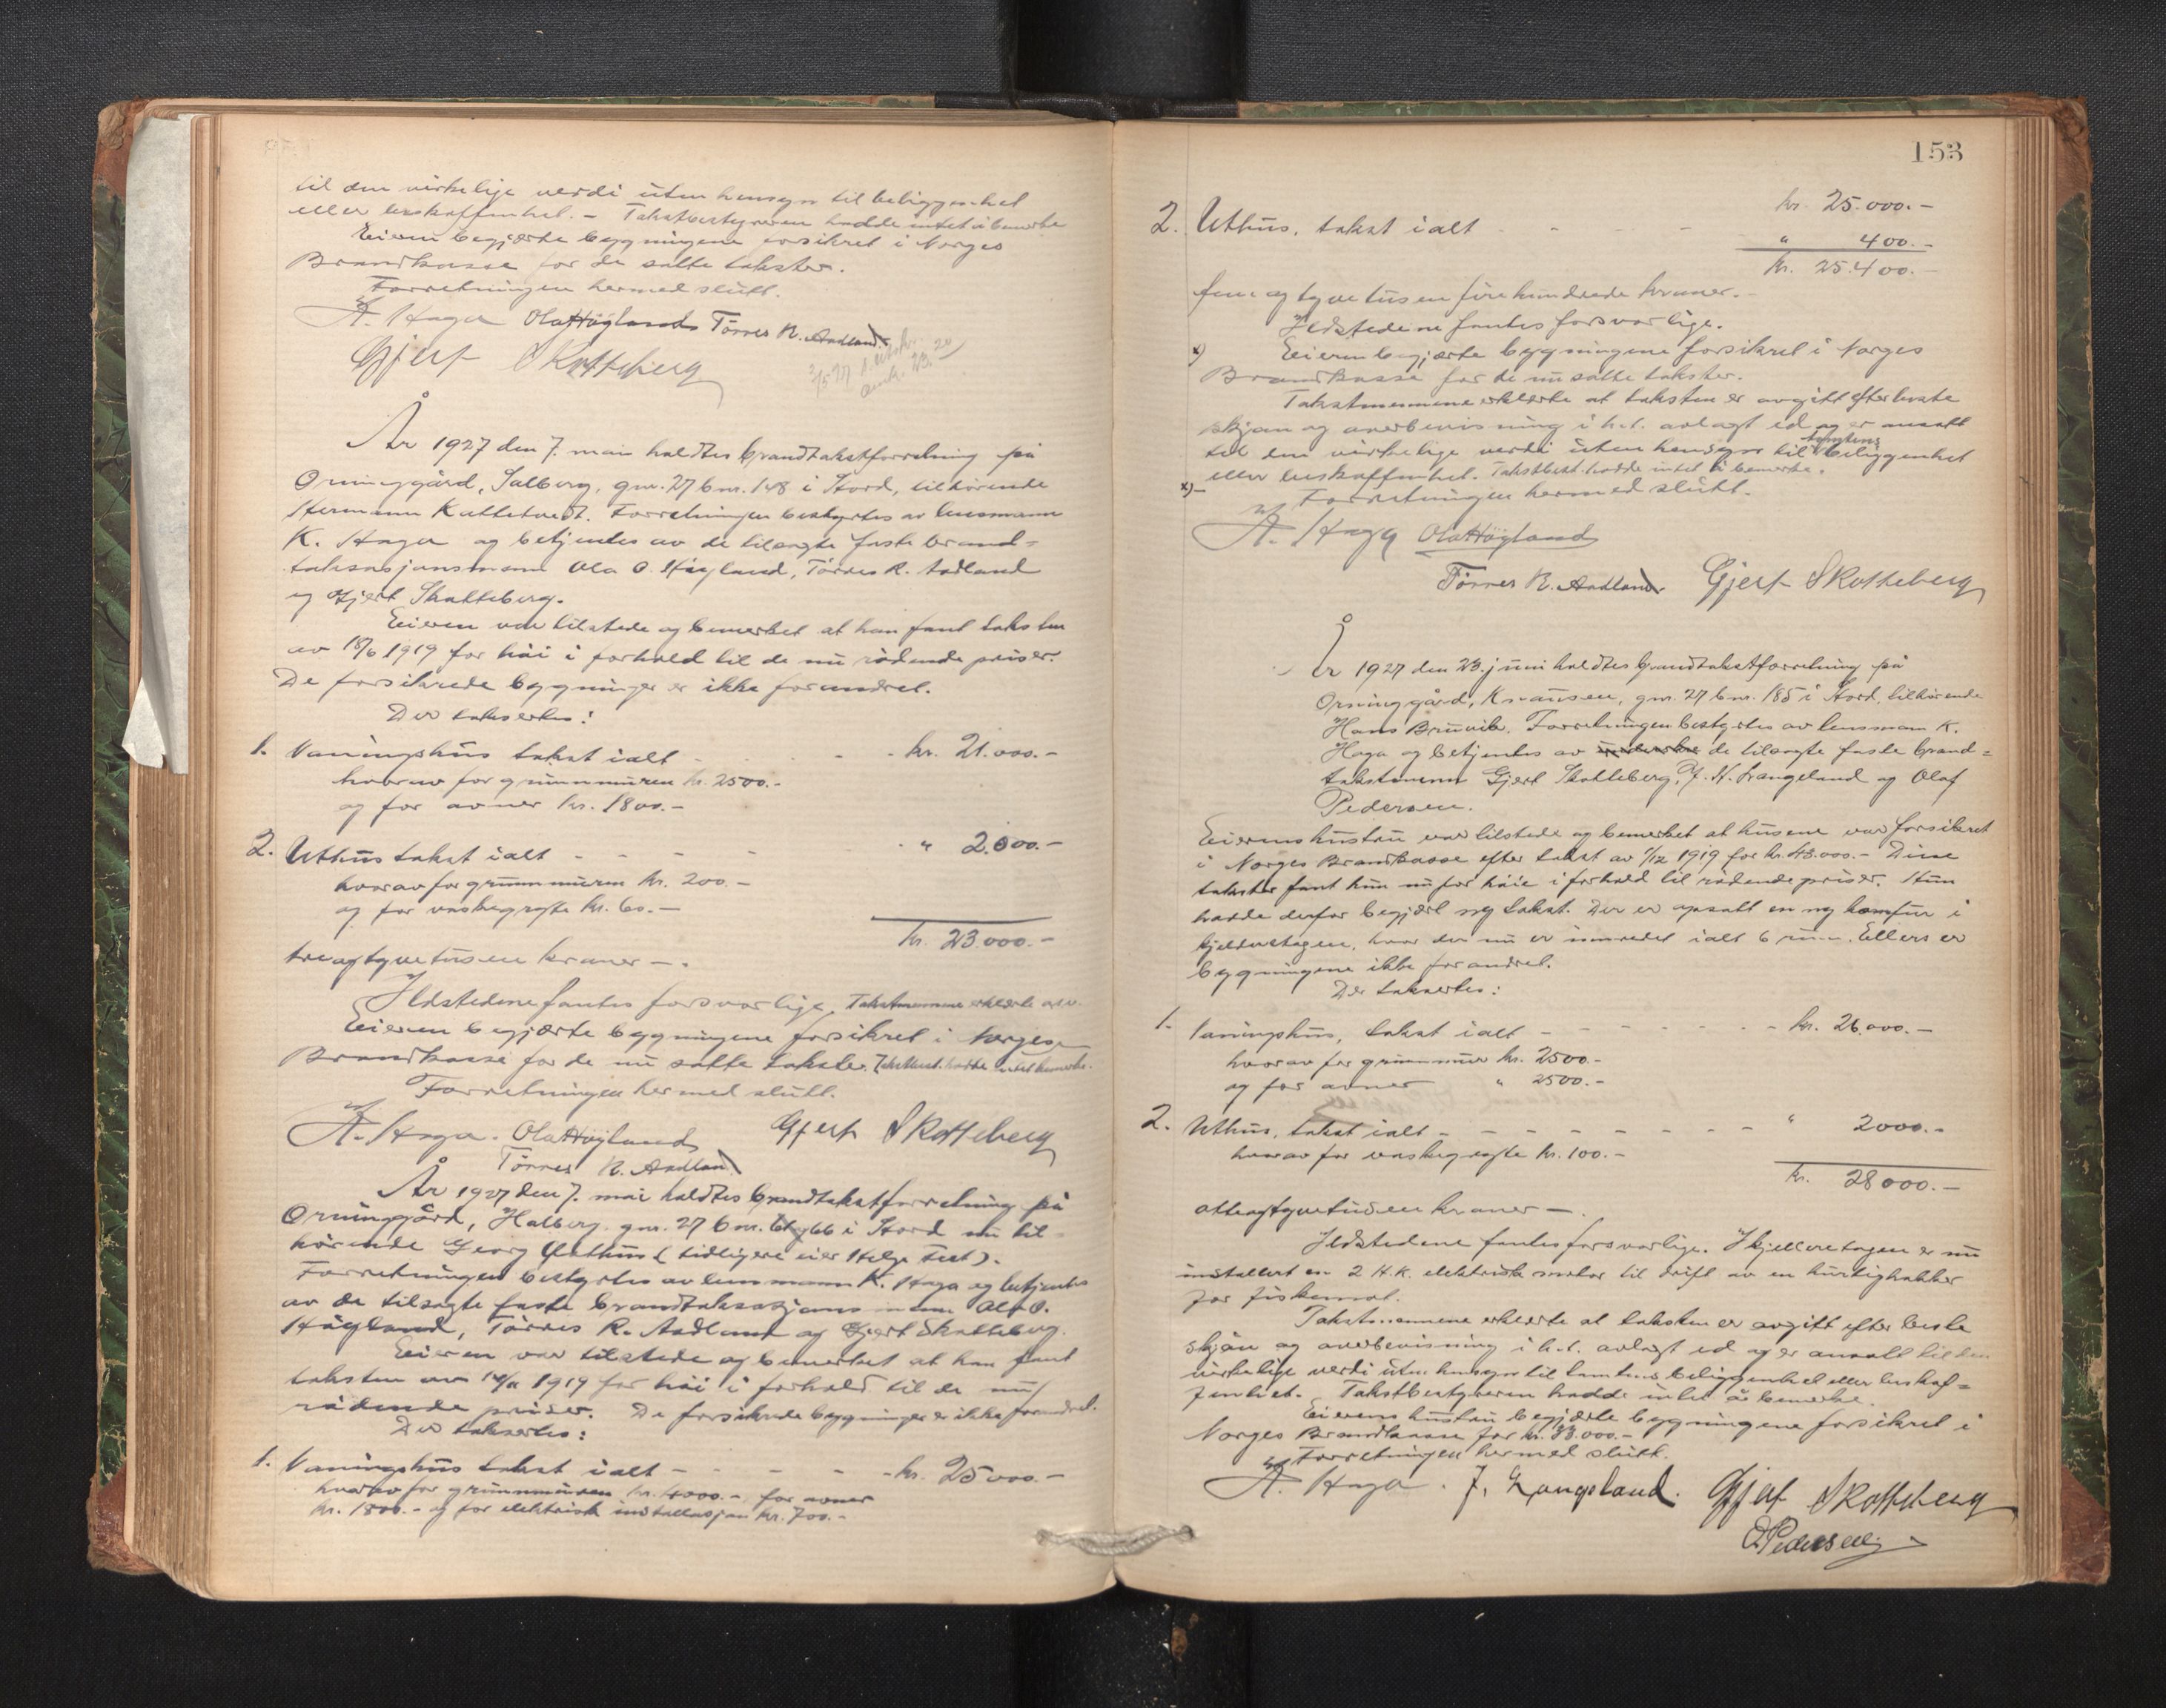 til den virkelige verdi uten hensyn til beliggenhet
eller beskaffenhet. – Takstbestyreren hadde intet å bemerke
Eieren begjærte bygningene forsikret i Norges
Brandkasse for de satte takster.
Forretningen hermed slutt.
K. Haga Ola Høgland Tørres R. Aadland
Gjert Skotteberg
År 1927 den 7. mai holdtes brandtakstforretning på
Orninggård, Solberg, gnr. 27 bnr. 148 i Stord, tilhørende
Hermann Kattetvedt. Forretningen bestyrtes av lensmann
K. Haga og betjentes av de tilsagte faste brand=
taksasjonsmenn Ola O. Høgland, Tørres R. Aadland
og Gjert Skotteberg.
Eieren var tilstede og bemerket at han fant taksten
av 18/6 1919 for høi i forhold til de nu rådende priser.
De forsikrede bygninger er ikke forandret.
Der takseertes:
1. Våningshus takst ialt - - - kr. 21.000.–
hvorav for grunnmuren kr. 2500.–
og for ovner kr. 1800.–
2. Uthus takst ialt - - - - " 2.000.–
hvorav for grunnmuren kr. 200.–
og for vaskegryte kr. 60.–
kr. 23.000.–
treogtyvetusen kroner –.
Ildstedene fantes forsvarlige. Takstmennene erklærte osv.
Eieren begjærte bygningene forsikret i Norges
Brandkasse for de nu satte takster. Takstbest. hadde intet bemerke.
Forretningen hermed slutt.
K. Haga. Ola Høgland Gjert Skotteberg
Tørres R. Aadland
År 1927 den 7. mai holdtes brandtakstforretning på
Orninggård, Halberg, gnr. 27 bnr. 66 i Stord nu til
hørende Georg (tidligere eier Helge).
Forretningen bestyrtes av lensmann K. Haga og betjentes
av de tilsagte faste brandtaksasjonsmenn Ola O.
Høgland, Tørres R. Aadland og Gjert Skotteberg.
Eieren var tilstede og bemerket at han fant
taksten av 1919 for høi i forhold til de nu
rådende priser. De forsikrede bygninger er ikke forandret.
Der takseertes:
1. Våningshus takst ialt - - - - kr. 25 000.–
hvorav for grunnmuren kr. 4000.–, for ovner
kr. 1800.– og for elektrisk installasjon kr. 700.–
153
kr. 25.000.–
2. Uthus, takst ialt - - - - " 400.–
kr. 25.400.–
fem og tyvetusen firehundrede kroner.–
Ildstedene fantes forsvarlige.
x) Eieren begjærte bygningene forsikret i Norges
Brandkasse for de nu satte takster.
Takstmennene erklærte at taksten er avgitt efter beste
skjøn og overbevisning i h.t. avlagt ed og er ansatt
til den virkelige verdi uten hensyn til tomtens beliggenhet
eller beskaffenhet. Takstbest. hadde intet å bemerke.
x)– Forretningen hermed slutt.
K. Haga Ola Høgland
Tørres R. Aadland. Gjert Skotteberg
År 1927 den 23. juni holdtes brandtakstforretning på
Orninggård, Knausen, gnr. 27 bnr. 185 i Stord, tilhørende
Hans Bruvik. Forretningen bestyrtes av lensmann K.
Haga og betjentes av de tilsagte faste brand=
takstmenn Gjert Skotteberg, J. H. Langeland og Olaf
Pedersen.
Eierens hustru var tilstede og bemerket at husene var forsikret
i Norges Brandkasse efter takst av 1/12 1919 for kr. 43.000.– Disse
takster fant hun nu for høie i forhold til rådende priser. Hun
hadde derfor begjært ny takst. Der er opsatt en ny komfur i
kjelderetagen, hvor der nu er innredet ialt 6 rum. Ellers er
bygningene ikke forandret.
Der takseertes:
1. Våningshus, takst ialt - - - - - - kr. 26,000.–
hvorav for grunnmur kr. 2500.–
og for ovner " 2500.–
2. Uthus, takst ialt - - - - - - - - " 2000.–
hvorav for vaskegryte kr. 100.–
kr. 28000.–
otteogtyvetusen kroner –.
Ildstedene fantes forsvarlige. I kjelleretagen er nu
installert en 2 H.K. elektrisk motor til drift av en hurtighakker
for fiskemat.
Takstmennene erklærte at taksten er avgitt efter beste
skjøn og overbevisning i h.t. avlagt ed og er ansatt til den
virkelige verdi uten hensyn til tomtens beliggenhet eller beskaf=
fenhet. Takstbestyreren hadde intet å bemerke.
Eierens hustru begjærte bygningene forsikret i
Norges Brandkasse for kr. 28.000.–
Forretningen hermed slutt.
K. Haga. J. Langeland. Gjert Skotteberg
O Pedersen